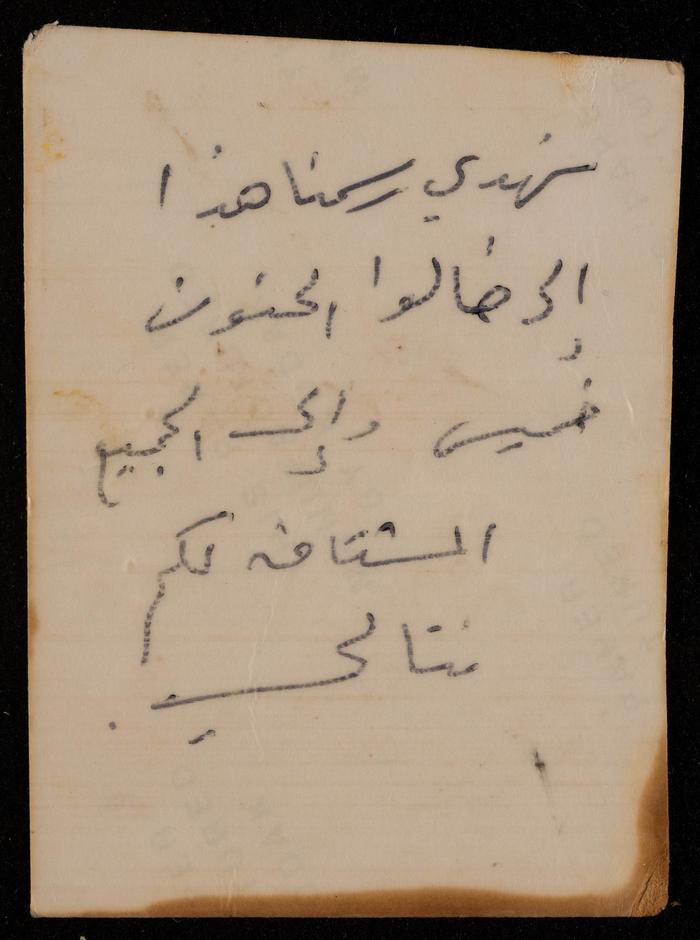 نهدي رسمنا هذا
إلى خالوا الحنون
خميس وإلى الجميع
المشتاقه لكم
نتالي